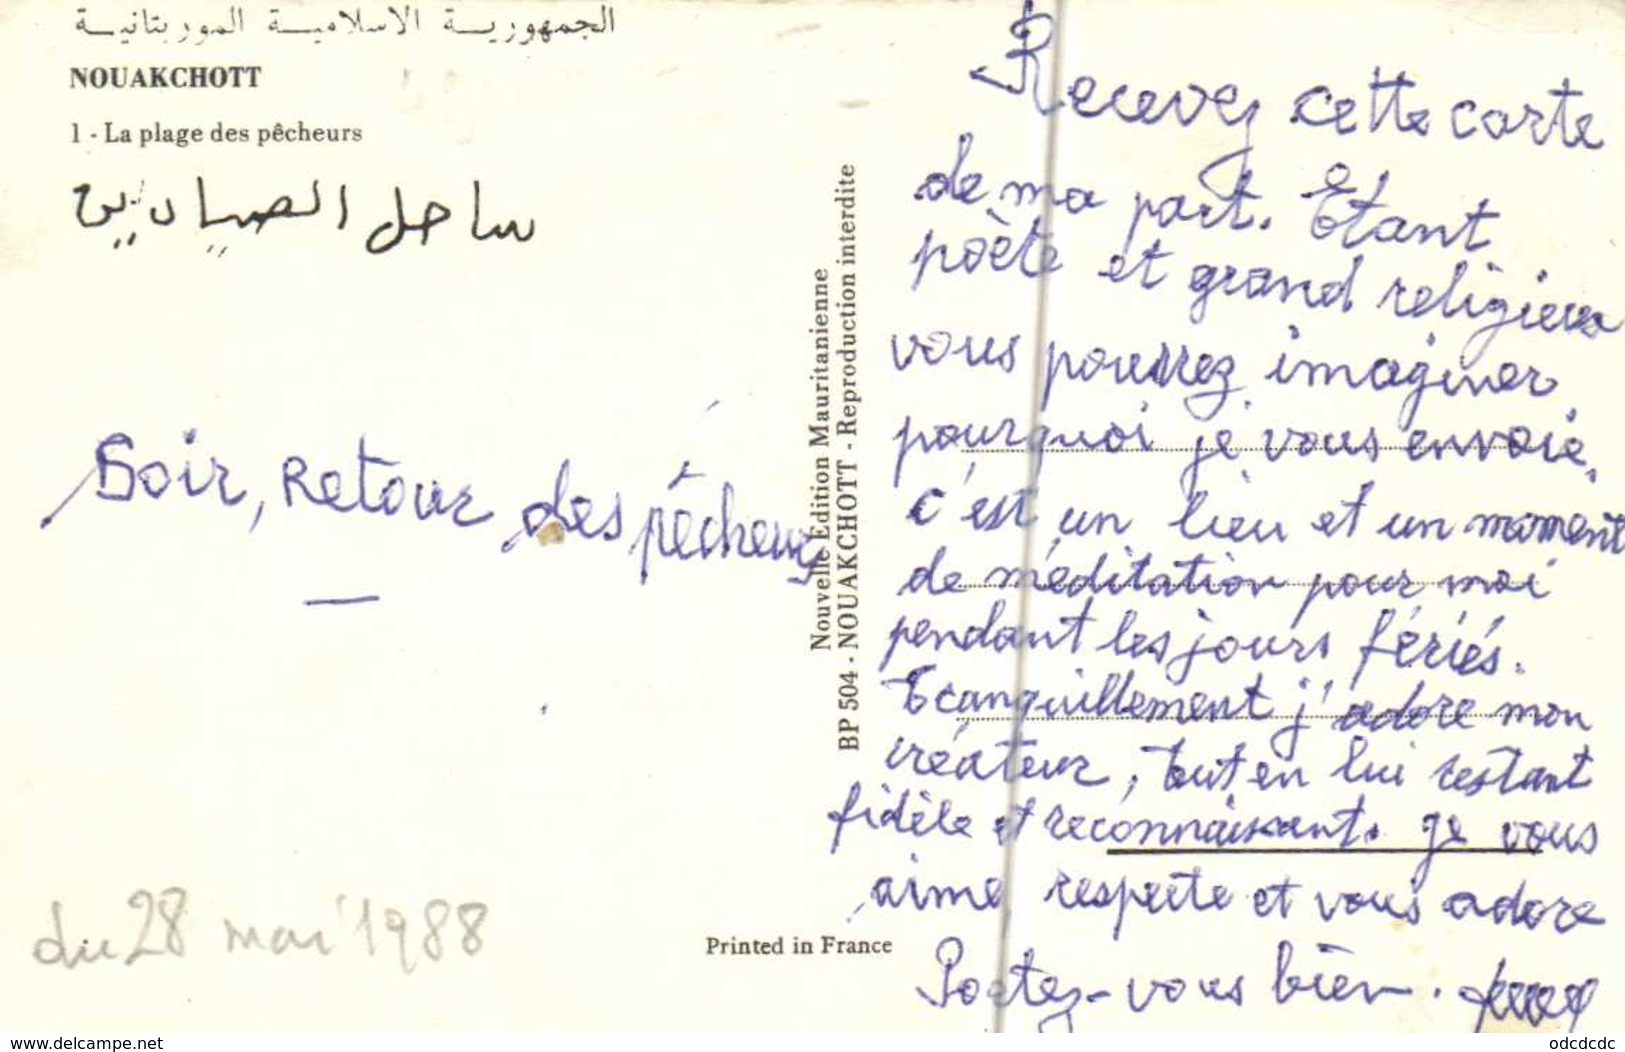 الجمهورية الاسلامية الموريتانية
NOUAKCHOTT
1 - La plage des pêcheurs
ساحل الصيادين
Soir, Retour des pêcheurs
du 28 mai 1988
Nouvelle Edition Mauritanienne
BP 504 - NOUAKCHOTT - Reproduction interdite
Printed in France
Recevez cette carte
de ma part. Etant
poète et grand religieux
vous pourrez imaginer
pourquoi je vous envoie,
c'est un lieu et un moment
de méditation pour moi
pendant les jours fériés.
Tranquillement j'adore mon
créateur, tout en lui restant
fidèle et reconnaissant. je vous
aime respecte et vous adore
Portez-vous bien.
www.delcampe.net
odcdcdc